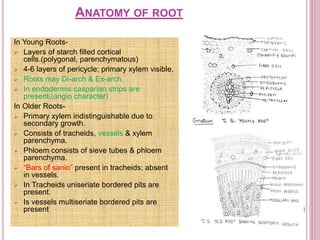 ANATOMY OF ROOT
In Young Roots-
Layers of starch filled cortical
cells.(polygonal, parenchymatous)
4-6 layers of pericycle; primary xylem visible.
Roots may Di-arch & Ex-arch.
In endodermis casparian strips are
present.(angio character)
In Older Roots-
Primary xylem indistinguishable due to
secondary growth.
Consists of tracheids, vessels & xylem
parenchyma.
Phloem consists of sieve tubes & phloem
parenchyma.
"Bars of sanio" present in tracheids; absent
in vessels.
In Tracheids uniseriate bordered pits are
present.
Is vessels multiseriate bordered pits are
present
EPIDERMIS
CORTICAL CELLS
FIBRE CELL
ENDODERMIS
PERICYCLE
PHLOEM
METAXYLEM
T. S. YOUNG ROOT
CORTEX
ENDODERMIS
PERICYCLE
PHLOEM
MEDULLARY RAYS
T.S. OLD ROOT SHOWING SECONDARY GROWTH